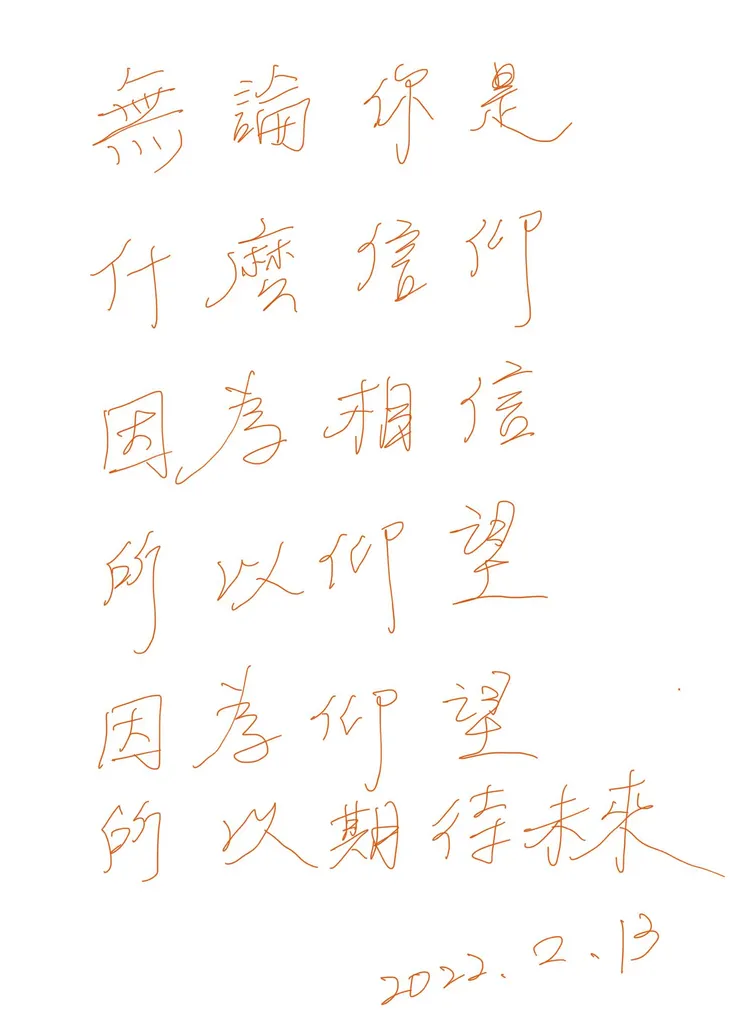 無論你是
什麼信仰
因為相信
所以仰望
因為仰望
所以期待未來
2022.2.13